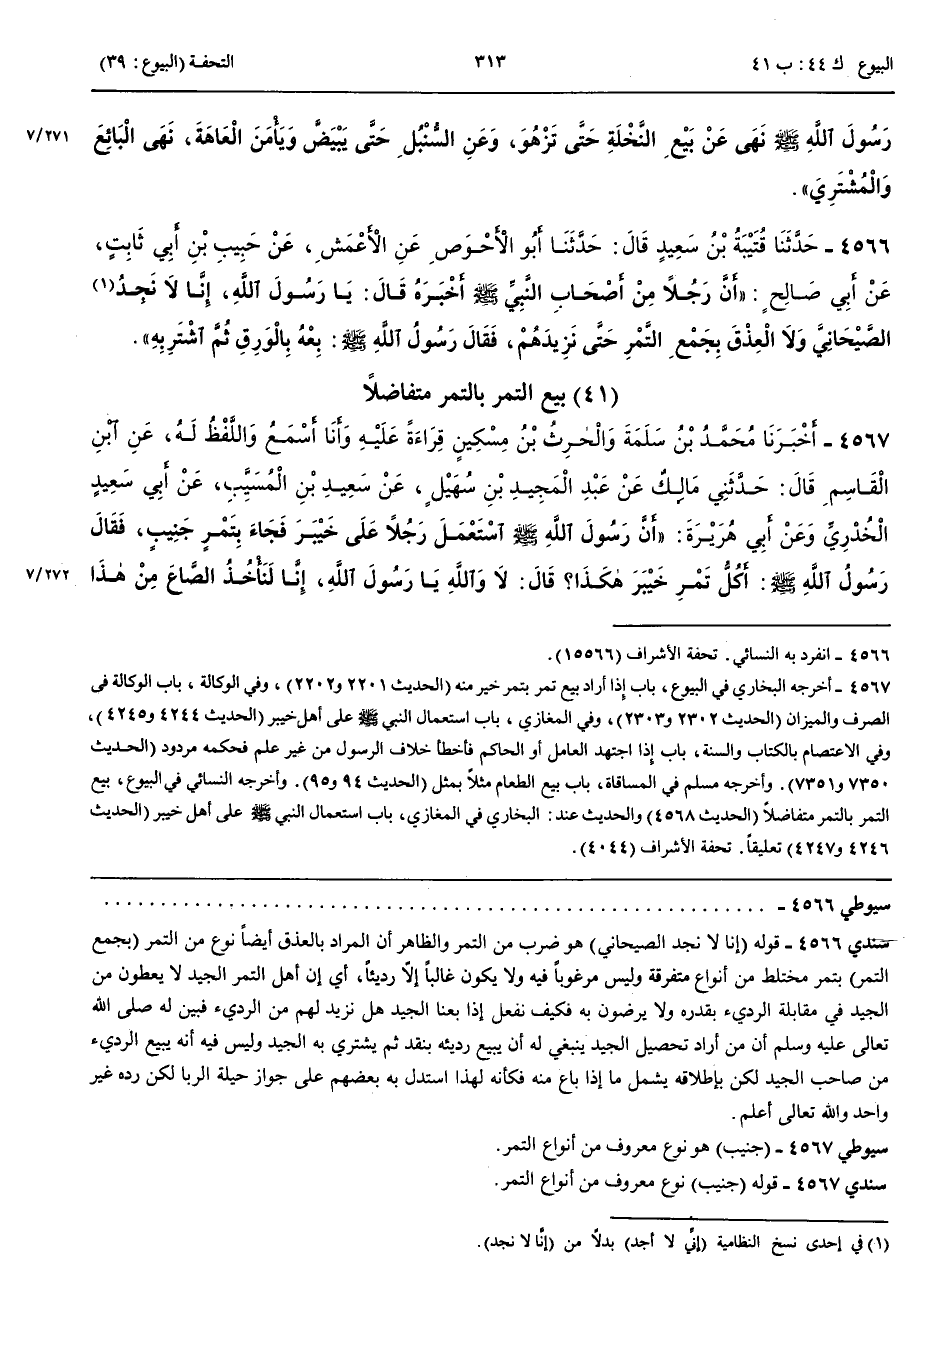 البيوع ك ٤٤: ب ٤١ ٣١٣ التحفة (البيوع: ٣٩)
رَسُولَ ٱللَّهِ ﷺ نَهَى عَنْ بَيْعِ النَّخْلَةِ حَتَّى تَزْهُوَ، وَعَنِ السُّنْبُلِ حَتَّى يَبْيَضَّ وَيَأْمَنَ الْعَاهَةَ، نَهَى الْبَائِعَ ٧/٢٧١
وَالْمُشْتَرِيَ».
٤٥٦٦ ـ حَدَّثَنَا قُتَيْبَةُ بْنُ سَعِيدٍ قَالَ: حَدَّثَنَا أَبُو الْأَحْوَصِ عَنِ الْأَعْمَشِ، عَنْ حَبِيبِ بْنِ أَبِي ثَابِتٍ،
عَنْ أَبِي صَالِحٍ: «أَنَّ رَجُلًا مِنْ أَصْحَابِ النَّبِيِّ ﷺ أَخْبَرَهُ قَالَ: يَا رَسُولَ ٱللَّهِ، إِنَّا لَا نَجِدُ(١)
الصَّيْحَانِيَّ وَلَا الْعِذْقَ بِجَمْعِ التَّمْرِ حَتَّى نَزِيدَهُمْ، فَقَالَ رَسُولُ ٱللَّهِ ﷺ: بِعْهُ بِالْوَرِقِ ثُمَّ ٱشْتَرِ بِهِ».
(٤١) بيع التمر بالتمر متفاضلًا
٤٥٦٧ ـ أَخْبَرَنَا مُحَمَّدُ بْنُ سَلَمَةَ وَالْحٰرِثُ بْنُ مِسْكِينٍ قِرَاءَةً عَلَيْهِ وَأَنَا أَسْمَعُ وَاللَّفْظُ لَهُ، عَنِ ٱبْنِ
الْقَاسِمِ قَالَ: حَدَّثَنِي مَالِكٌ عَنْ عَبْدِ الْمَجِيدِ بْنِ سُهَيْلٍ، عَنْ سَعِيدِ بْنِ الْمُسَيَّبِ، عَنْ أَبِي سَعِيدٍ
الْخُدْرِيِّ وَعَنْ أَبِي هُرَيْرَةَ: «أَنَّ رَسُولَ ٱللَّهِ ﷺ ٱسْتَعْمَلَ رَجُلًا عَلَى خَيْبَرَ فَجَاءَ بِتَمْرٍ جَنِيبٍ، فَقَالَ
رَسُولُ ٱللَّهِ ﷺ: أَكُلُّ تَمْرِ خَيْبَرَ هٰكَذَا؟ قَالَ: لَا وَٱللَّهِ يَا رَسُولَ ٱللَّهِ، إِنَّا لَنَأْخُذُ الصَّاعَ مِنْ هٰذَا ٧/٢٧٢
٤٥٦٦ ـ انفرد به النسائي. تحفة الأشراف (١٥٥٦٦).
٤٥٦٧ ـ أخرجه البخاري في البيوع، باب إذا أراد بيع تمر بتمر خير منه (الحديث ٢٢٠١ و٢٢٠٢)، وفي الوكالة، باب الوكالة فى
الصرف والميزان (الحديث ٢٣٠٢ و٢٣٠٣)، وفي المغازي، باب استعمال النبي ﷺ على أهل خيبر (الحديث ٤٢٤٤ و٤٢٤٥)،
وفي الاعتصام بالكتاب والسنة، باب إذا اجتهد العامل أو الحاكم فأخطأ خلاف الرسول من غير علم فحكمه مردود (الحديث
٧٣٥٠ و٧٣٥١). وأخرجه مسلم في المساقاة، باب بيع الطعام مثلًا بمثل (الحديث ٩٤ و٩٥). وأخرجه النسائي في البيوع، بيع
التمر بالتمر متفاضلًا (الحديث ٤٥٦٨) والحديث عند: البخاري في المغازي، باب استعمال النبي ﷺ على أهل خيبر (الحديث
٤٢٤٦ و٤٢٤٧) تعليقاً. تحفة الأشراف (٤٠٤٤).
سيوطي ٤٥٦٦ ـ . . . . . . . . . . . . . . . . . . . . . . . . . . . . . .
سندي ٤٥٦٦ ـ قوله (إنا لا نجد الصيحاني) هو ضرب من التمر والظاهر أن المراد بالعذق أيضاً نوع من التمر (بجمع
التمر) بتمر مختلط من أنواع متفرقة وليس مرغوباً فيه ولا يكون غالباً إلّا رديئاً، أي إن أهل التمر الجيد لا يعطون من
الجيد في مقابلة الرديء بقدره ولا يرضون به فكيف نفعل إذا بعنا الجيد هل نزيد لهم من الرديء فبين له صلى الله
تعالى عليه وسلم أن من أراد تحصيل الجيد ينبغي له أن يبيع رديئه بنقد ثم يشتري به الجيد وليس فيه أنه يبيع الرديء
من صاحب الجيد لكن بإطلاقه يشمل ما إذا باع منه فكأنه لهذا استدل به بعضهم على جواز حيلة الربا لكن رده غير
واحد والله تعالى أعلم.
سيوطي ٤٥٦٧ ـ (جنيب) هو نوع معروف من أنواع التمر.
سندي ٤٥٦٧ ـ قوله (جنيب) نوع معروف من أنواع التمر.
(١) في إحدى نسخ النظامية (إنِّي لا أجد) بدلًا من (إنَّا لا نجد).